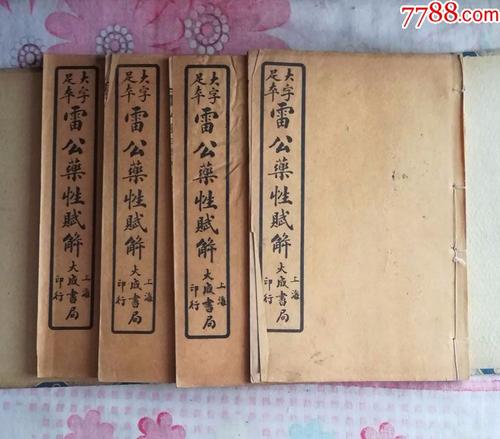 7788.com
大字
足夲
雷公藥性賦解
上海
大成書局
印行
大字
足夲
雷公藥性賦解
上海
大成書局
印行
大字
足夲
雷公藥性賦解
上海
大成書局
印行
大字
足夲
雷公藥性賦解
上海
大成書局
印行